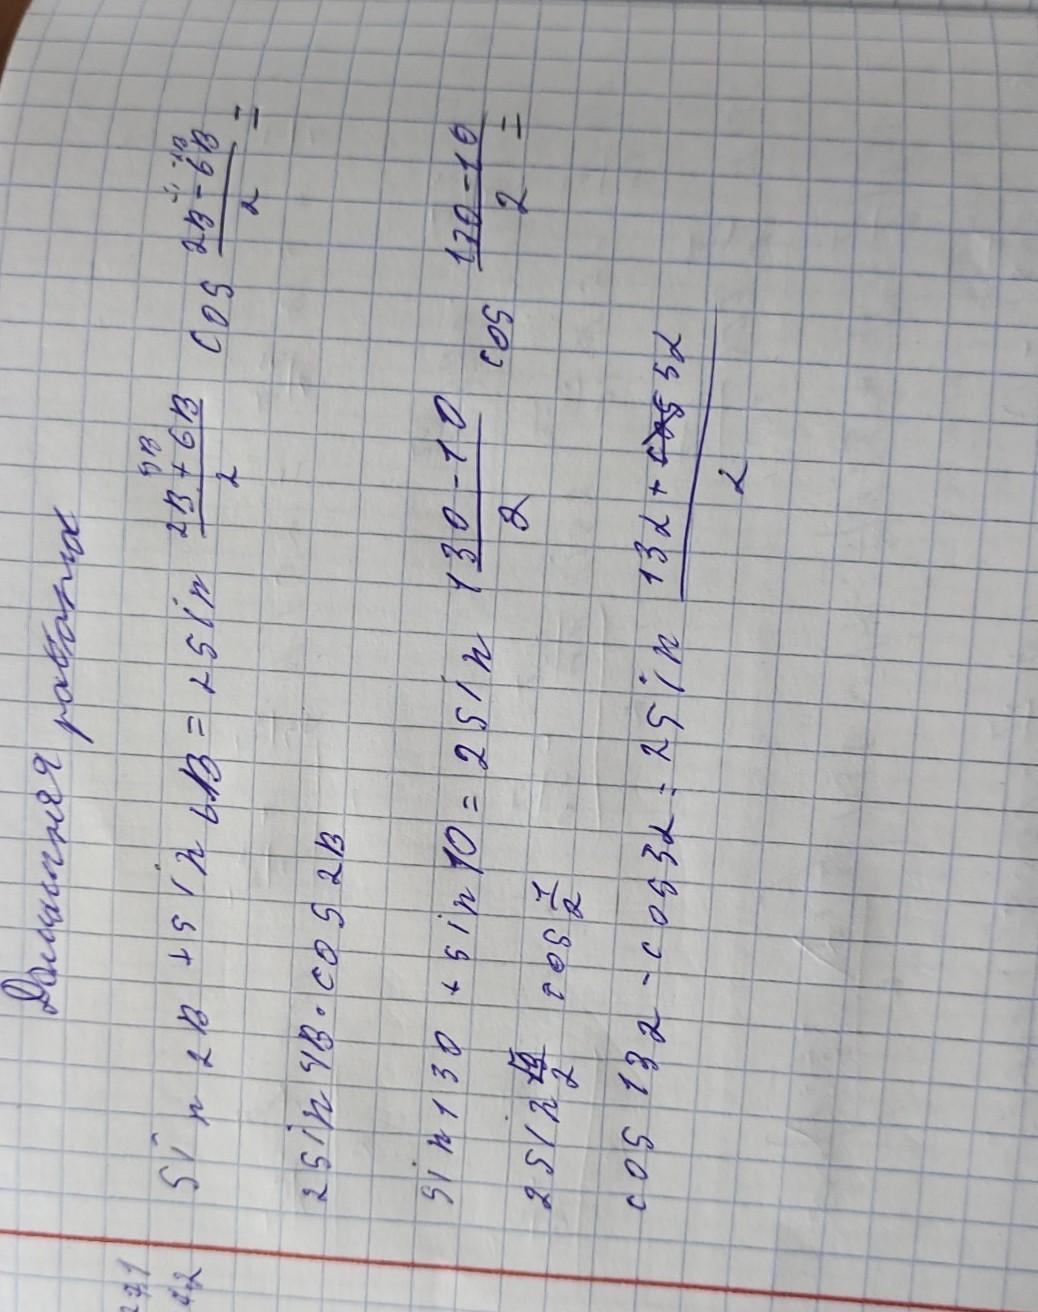 Домашняя работа
sin 2B + sin 6B = 2 sin (2B + 6B)/2 cos (2B - 6B)/2 =
2 sin 4B · cos 2B
sin 130 + sin 10 = 2 sin (130 - 10)/2 cos (130 - 10)/2 =
2 sin /2 cos 1/2
cos 13α - cos 3α = 2 sin (13α + 5α)/2